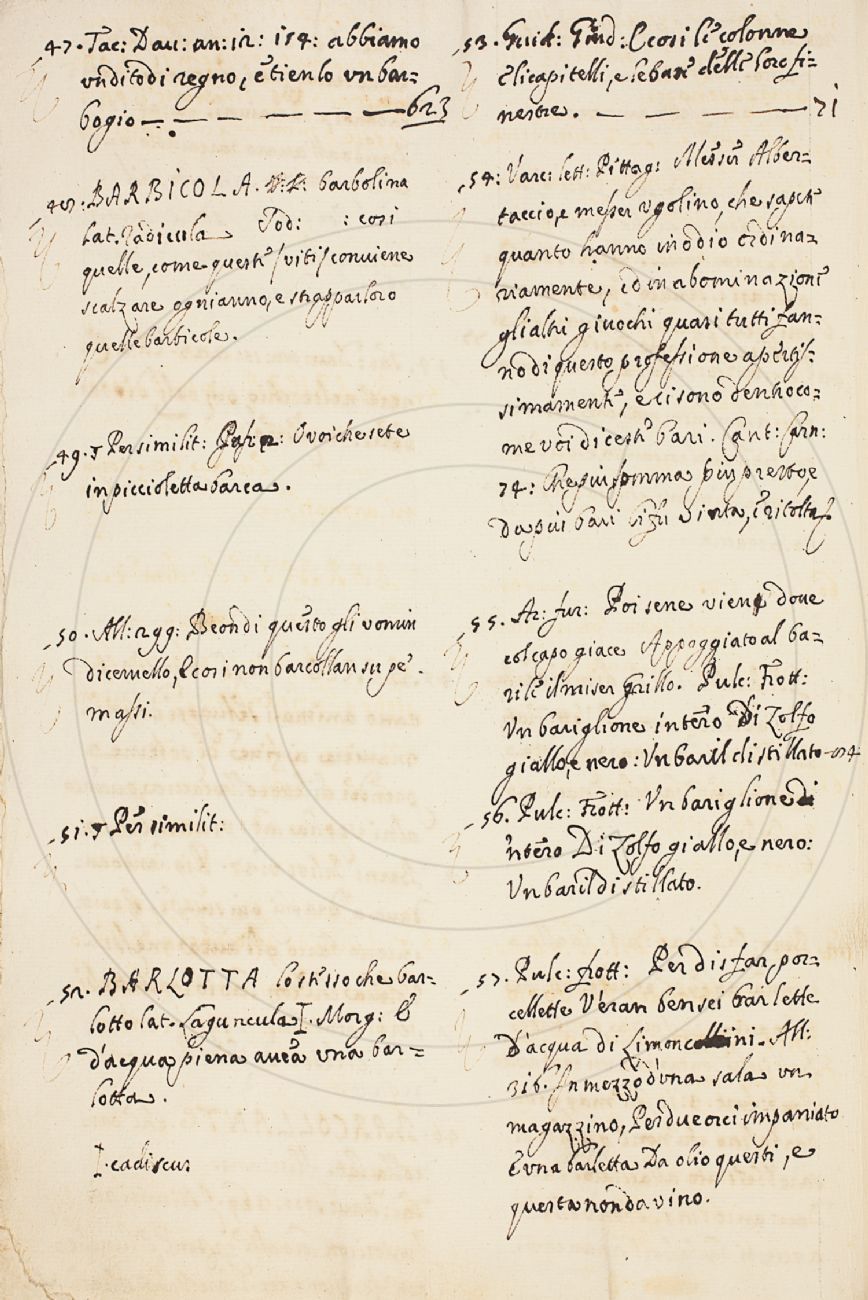 47. Tac: Dau: an: 12: 154: abbiamo
vn dito di regno, e tienlo vn bar-
bogio — — — — 623
48. BARBICOLA. barbolina
lat. radicula Tod: : così
quelle, come queste / viti / conuiene
scalzare ogni anno, e strapparloro
quelle barbicole.
49. Per similit: O voi che sete
in piccioletta barca.
50. All: 299: Beon di questo gli vomin
di ceruello, E così non barcollan su pe'
massi.
51. Per similit:
52. BARLOTTA lo stesso che bar-
lotto lat. Laguncula I. Morg: E
d'acqua piena auea vna bar-
lotta.
I. cadiscus
53. Guid: Giud: E così le colonne
E li capitelli, e le base delle lore fi-
nestre. — — — 71
54. Varc: lett: Pittag: Messer Alber-
taccio, e messer vgolino, che sapete
quanto hanno in odio ordina-
riamente, ed in abominazione
gli altri giuochi quasi tutti fan-
no di questo professione apertis-
simamente, e ci sono dentro co-
me voi diceste bari. Cant: Carn:
74: Che piu somma piu presto, e
Da piu bari ci fu vinta, e ritolta
55. Ar: fur: Poi sene viene doue
col capo giace Appoggiato al ba-
rile il miser Grillo. Pulc: Frott:
Vn bariglione intero Di Zolfo
giallo, e nero: Vn baril distillato
56. Pulc: Frott: Vn bariglione
'ntero Di Zolfo giallo, e nero:
Vn baril distillato.
57. Pulc: frott: Per disfar por-
cellette V'eran ben sei barlette
D'acqua di Limoncellini. All:
316. In mezzo d'vna sala vn
magazzino, Per due orci impaniato
E vna barletta Da olio questi, e
questa non da vino.